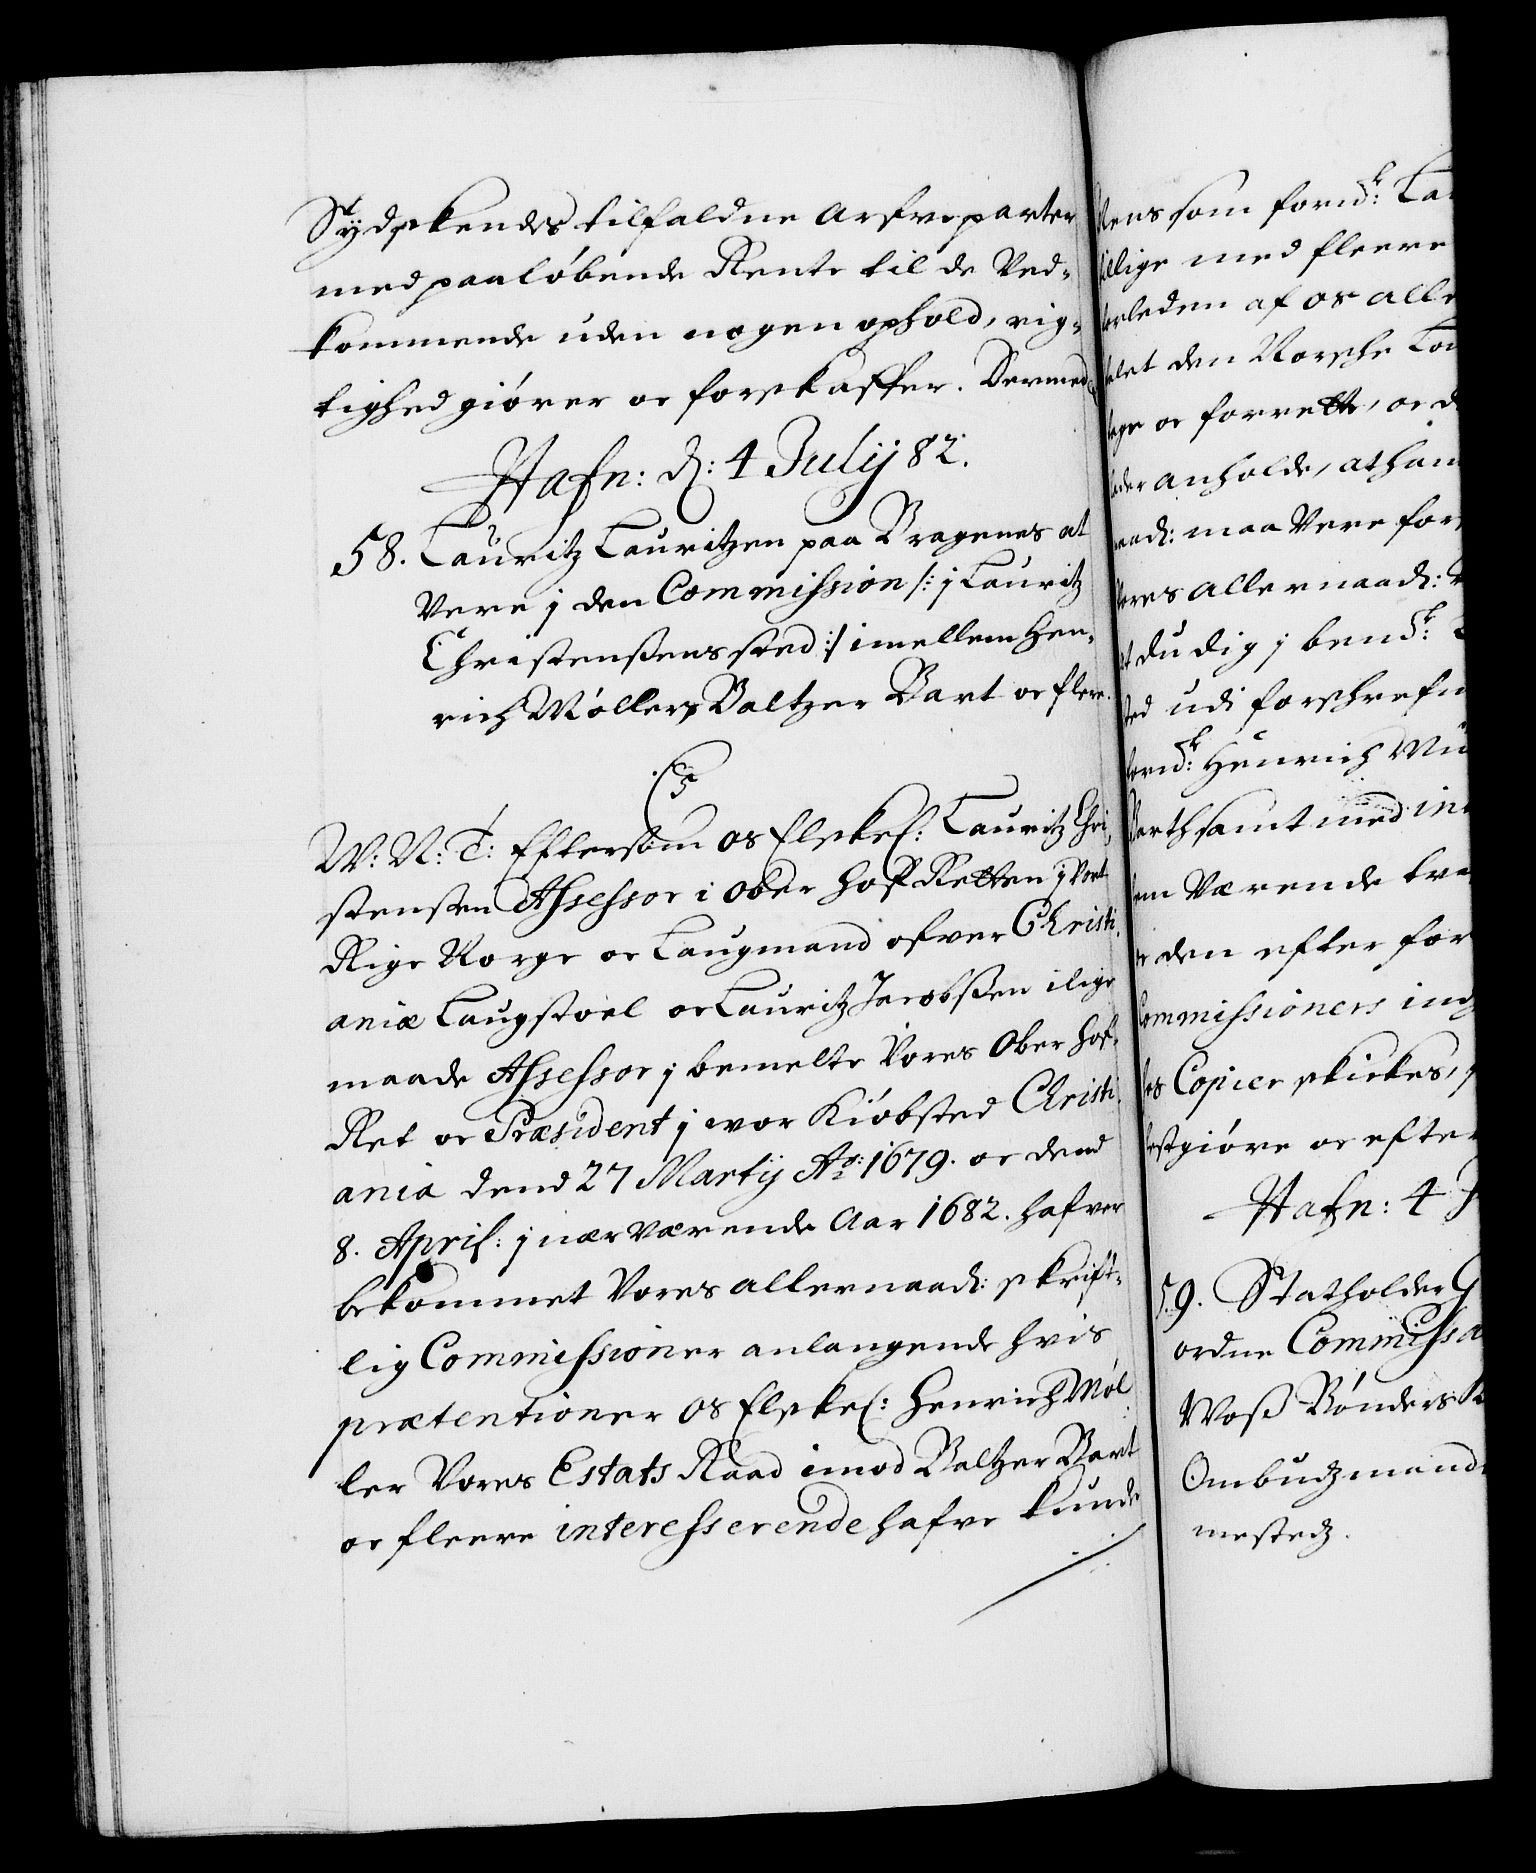 Sydskendes tilfaldne arfveparter
med paaløbende Rente til de Ved-
kommende uden nogen ophold, rig-
tighed giører oc forskaffer. Dermed
Hafn: d: 4 Julij 82.
58. Lauritz Lauritzen paa Bragenes at
Vere j den Commission /: j Lauritz
Christenßens sted :/ imellem Hen-
rich Møller, Baltzer Bart oc flere.
C5
W: N: T: Eftersom os Elskel: Lauritz Chri-
stenßen Assessor i Ober Hof Retten j Vort
Rige Norge oc Laugmand ofver Christi-
aniæ Laugstoel oc Lauritz Jacobßen ilige
maade Assessor j bemelte Vores Ober Hof-
Ret oc Præsident j vor Kiøbsted Christi-
ania dend 27 Martij Ao: 1679. oc dend
8. April: j nærværende Aar 1682. hafver
bekommet Vores allernaad: skrift-
lig Commissioner anlangende hvis
prætentioner os Elskel: Henrich Møl-
ler Vores Estats Raad imod Baltzer Bart
oc fleere interesserende hafve kunde
som fornd: La
med fleere
af os alle
den Norsche
oc forrette, oc
anholde, at ham
maa Vere for
allernaad:
du dig j bend:
udi forschrefn
Henrich Mü
samt med in
Værende
den efter for
Commissioners ind
Copier skickes,
oc efter
Hafn: 4 J
59. Statholder G
ordne Commissa
Woß Bønders
Ombudzmand
mestedz.